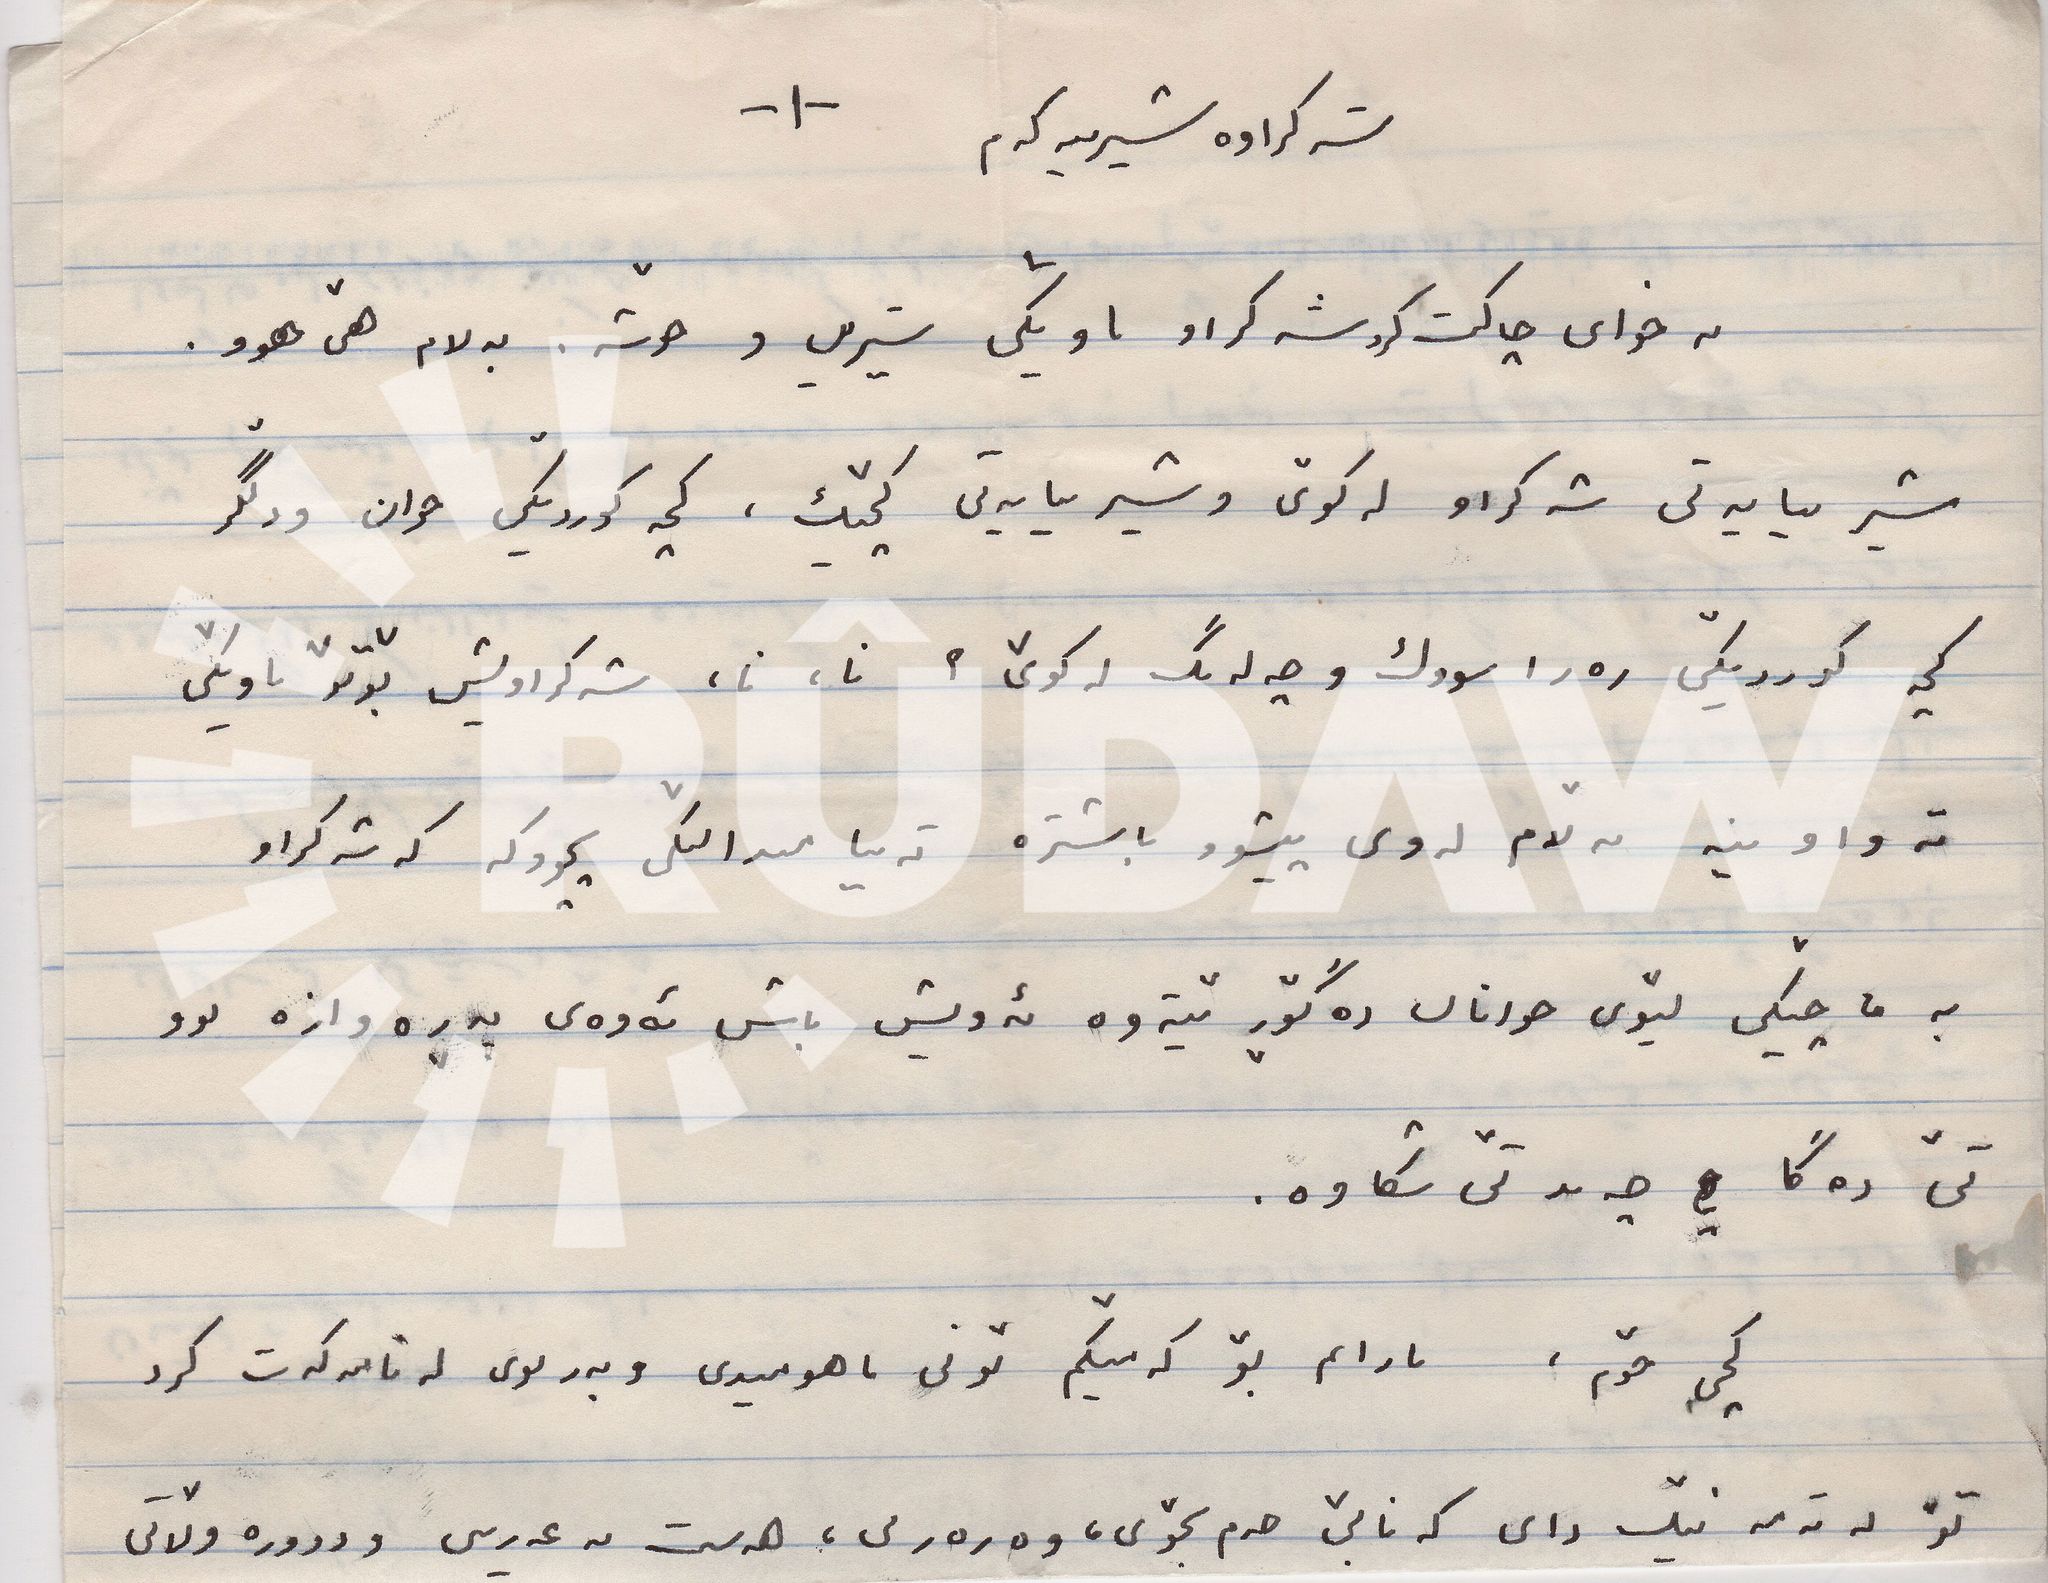 -١-
شەکراوە شیرینەکەم
بەخوای چاکت کرد شەکراو ناوێکی شیرین و خۆشە. بەلام هێ هوو.
شیرینایەتی شەکراو لەکوێ و شیرینایەتی کچێک، کچە کوردێکی جوان ودڵگر
کچە کوردێکی سووک و چەلەنگ لەکوێ؟ نا، نا، شەکراویش بۆتۆ ناوێکی
تەواو نیە بەڵام لەوی پێشوو باشترە تەنیا منداڵێکی بچووکە کەشەکراو
بە ماچێکی لێوی جوانان دەگۆڕێتەوە ئەویش باش ئەوەی پەڕەوازە بوو
تێ دەگا چەند تێ شکاوە.
کچی خۆم، نارام بۆ کەمێکم تۆنی ناهومیدی وبەربوی لەنامەکەت کرد
تۆ لە تەمەنێک دای کە نابێ خەم بخۆی، هەست بەغەریبی و دوورەوڵاتی
RÛDAW